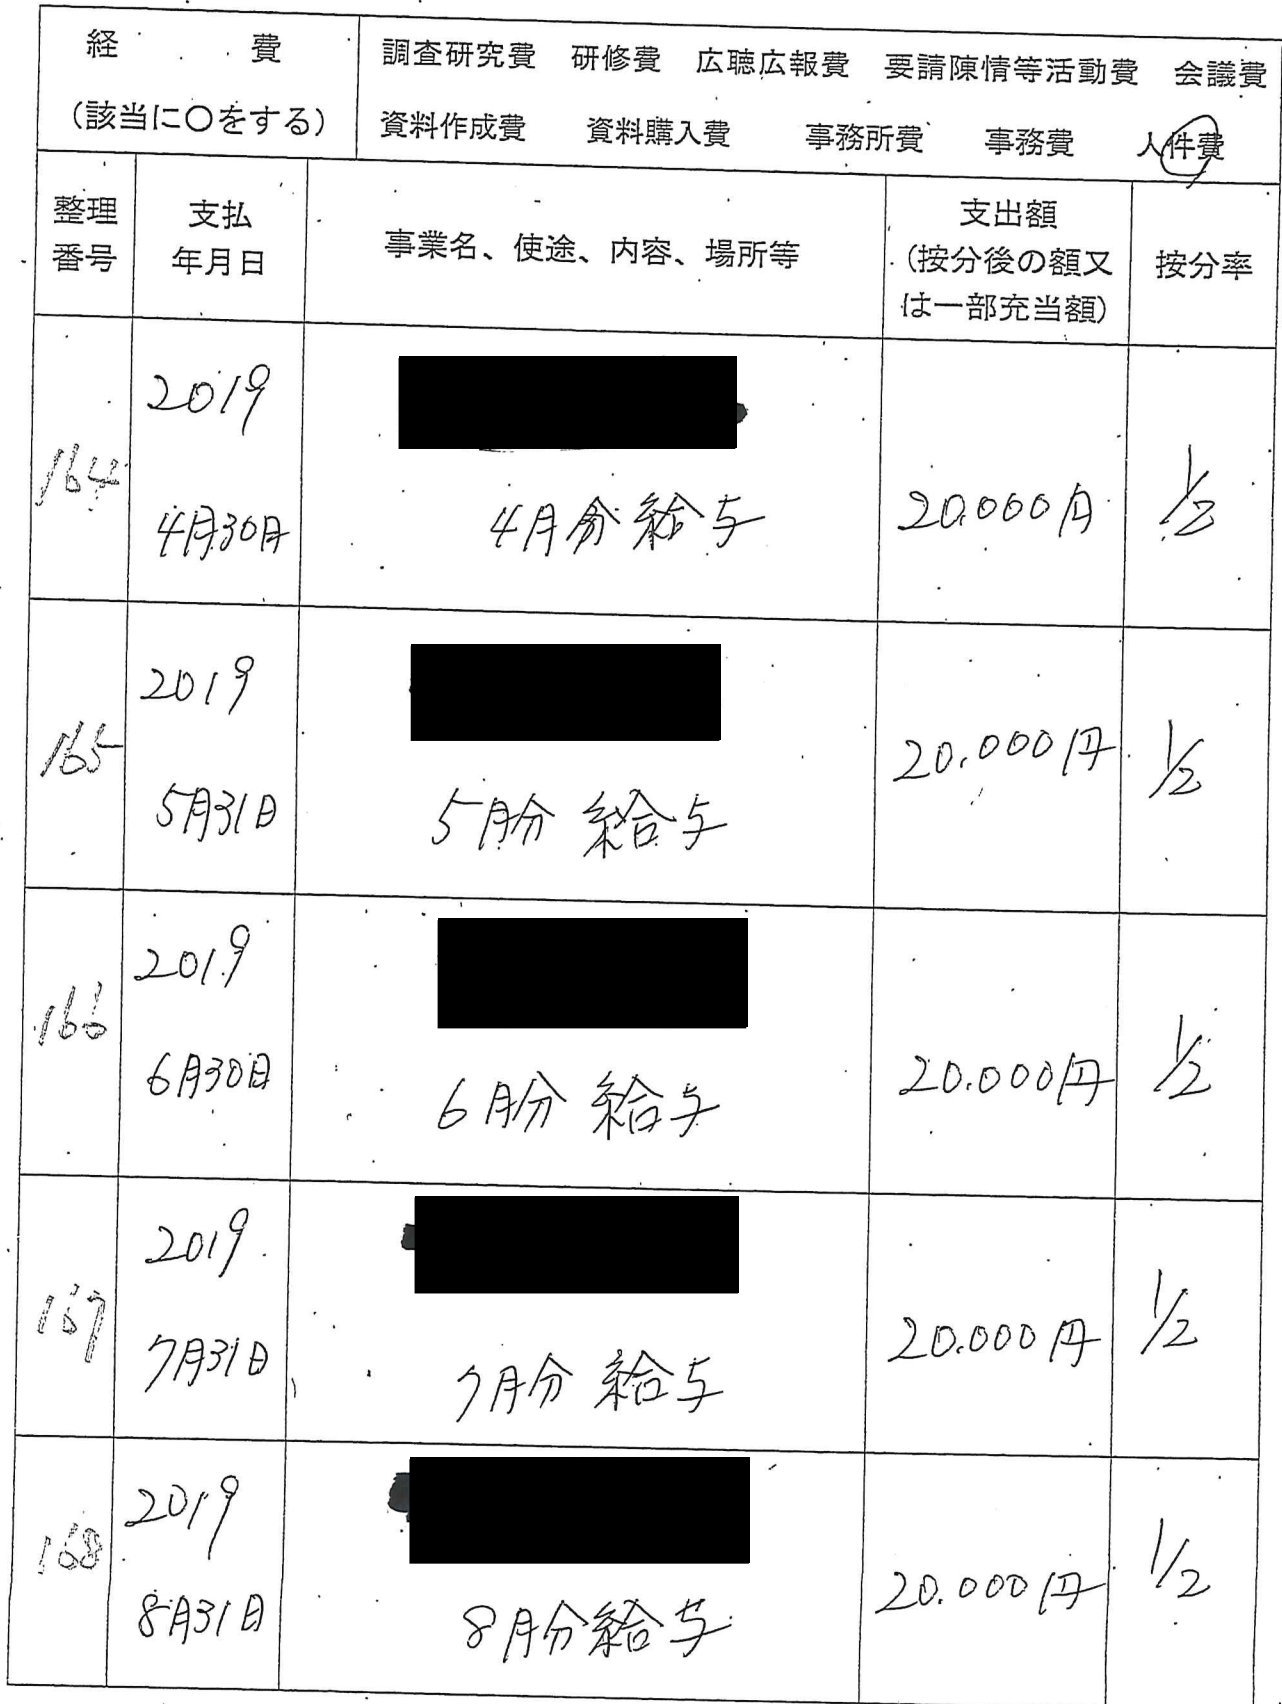 経　費
(該当に〇をする)
調査研究費　研修費　広聴広報費　要請陳情等活動費　会議費
資料作成費　資料購入費　事務所費　事務費　人件費
整理番号
支払年月日
事業名、使途、内容、場所等
支出額
(按分後の額又
は一部充当額)
按分率
164
2019
4月30日
4月分 給与
20.000円
1/2
165
2019
5月31日
5月分 給与
20.000円
1/2
166
2019
6月30日
6月分 給与
20.000円
1/2
167
2019
7月31日
7月分 給与
20.000円
1/2
168
2019
8月31日
8月分給与
20.000円
1/2